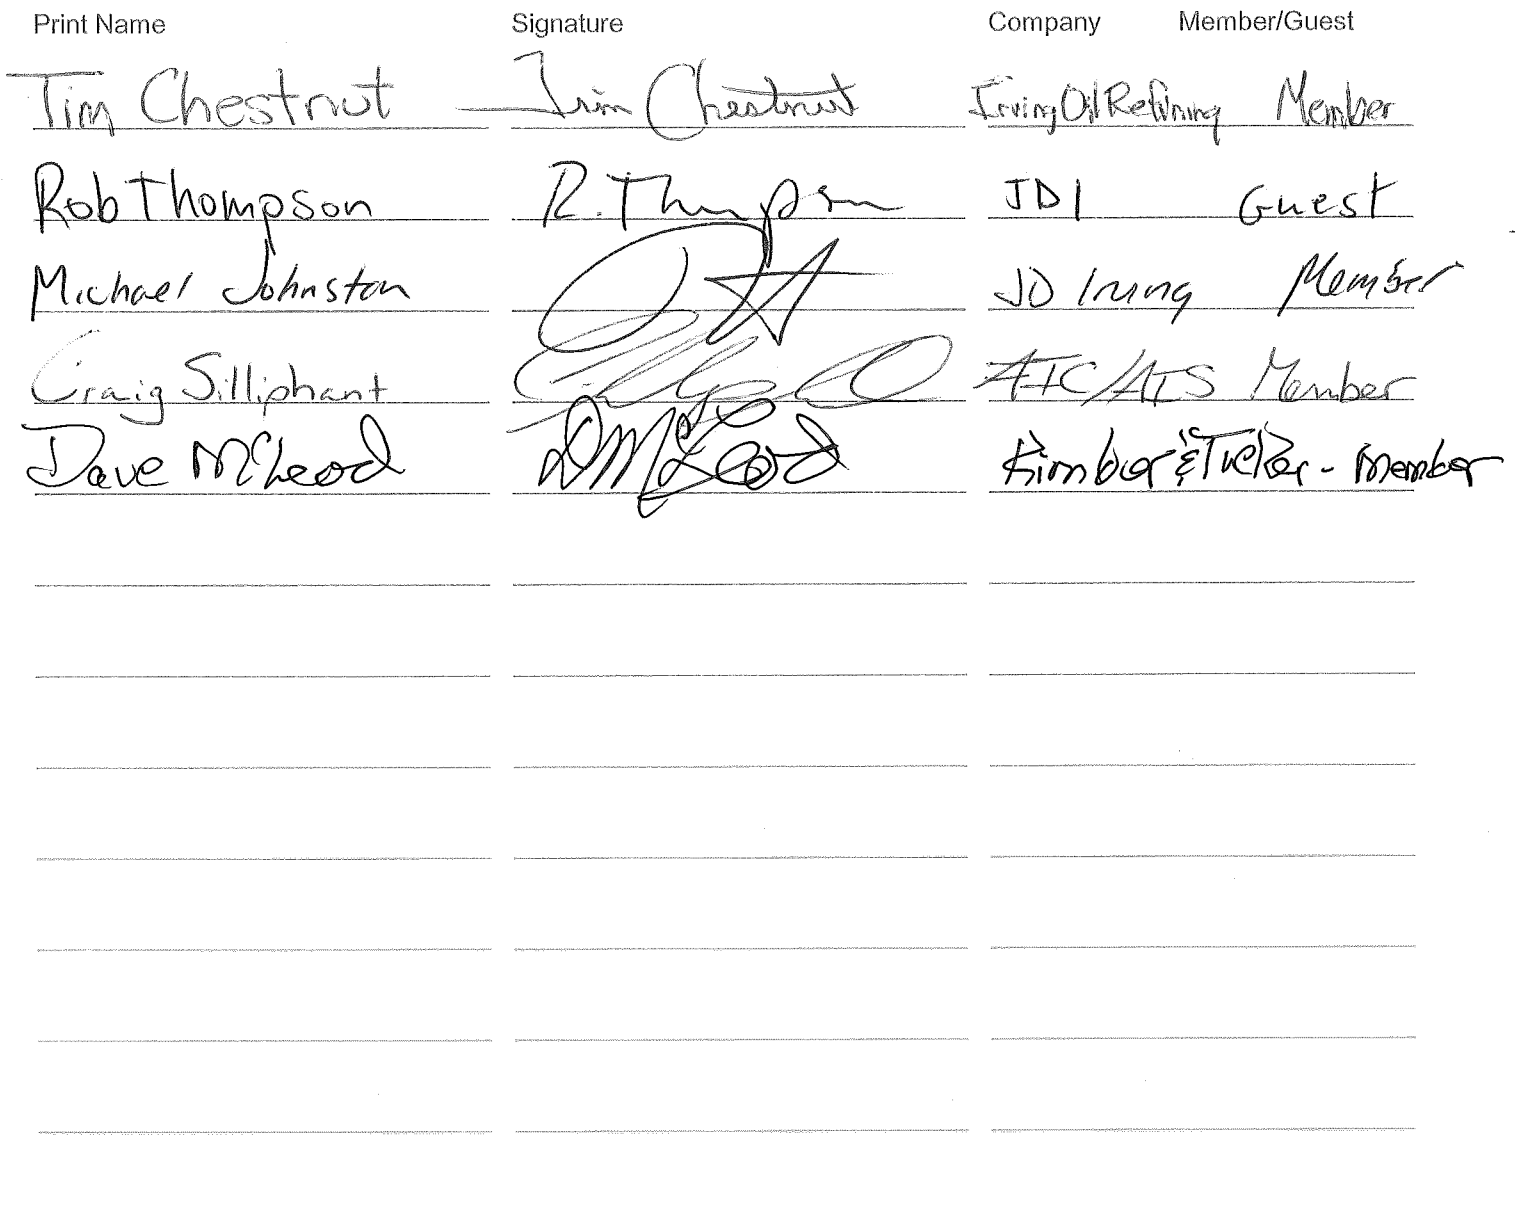 Print Name Signature Company Member/Guest
Tim Chestnut Tim Chestnut Irving Oil Refining Member
Rob Thompson R. Thompson JDI Guest
Michael Johnston JD Irving Member
Craig Silliphant AIC/AIS Member
Dave McLeod D McLeod & Tucker - Member